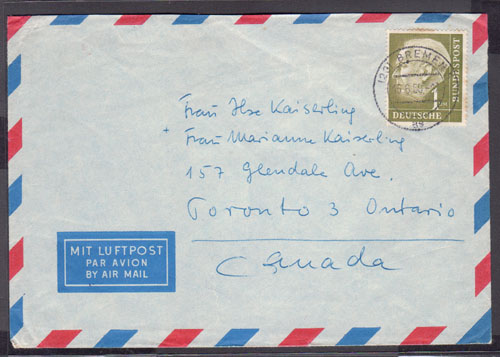 (23) BREMEN
1 DM
DEUTSCHE
BUNDESPOST
Frau Ilse Kaiserling
+ Frau Marianne Kaiserling
157 Glendale Ave.
Toronto 3 Ontario
Canada
MIT LUFTPOST
PAR AVION
BY AIR MAIL